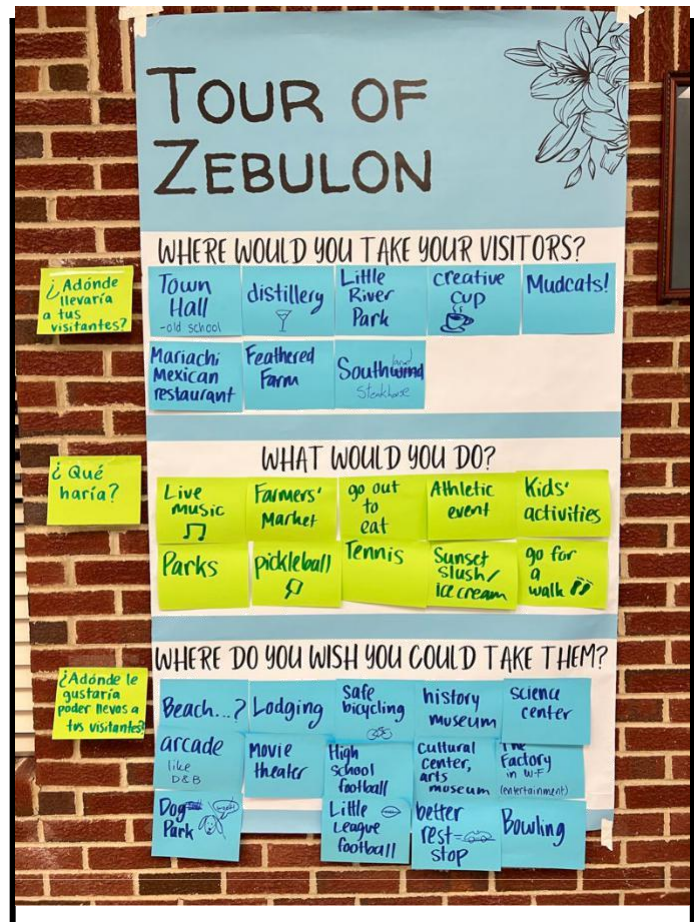 TOUR OF
ZEBULON
WHERE WOULD YOU TAKE YOUR VISITORS?
¿Adónde
llevaría
a tus
visitantes?
Town
Hall
-old school
distillery
Little
River
Park
creative
cup
Mudcats!
Mariachi
Mexican
restaurant
Feathered
Farm
Southwind
land
Steakhouse
WHAT WOULD YOU DO?
¿Qué
haría?
Live
music
Farmers'
Market
go out
to
eat
Athletic
event
Kids'
activities
Parks
pickleball
Tennis
Sunset
Slush/
ice cream
go for
a
walk
WHERE DO YOU WISH YOU COULD TAKE THEM?
¿Adónde le
gustaría
poder llevos a
tus visitantes?
Beach...?
Lodging
Safe
bicycling
history
museum
science
center
arcade
like
D&B
Movie
theater
High
School
football
Cultural
center,
arts
museum
The
Factory
in W-F
(entertainment)
Dog
Park
Little
League
football
better
rest
stop
Bowling